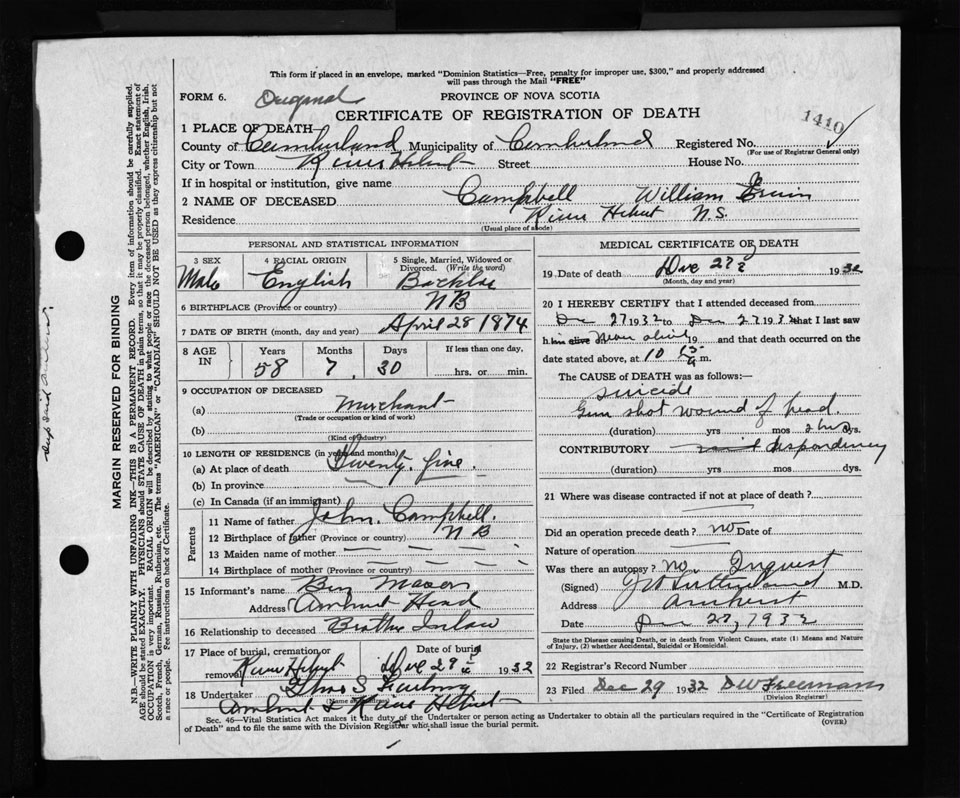 This form if placed in an envelope, marked "Dominion Statistics—Free, penalty for improper use, $300," and properly addressed
will pass through the Mail "FREE"
FORM 6. Original PROVINCE OF NOVA SCOTIA
CERTIFICATE OF REGISTRATION OF DEATH
1410
1 PLACE OF DEATH
County of Cumberland Municipality of Cumberland Registered No.
(For use of Registrar General only)
City or Town River Hebert Street House No.
If in hospital or institution, give name
2 NAME OF DECEASED Campbell William
Residence River Hebert N.S.
(Usual place of abode)
PERSONAL AND STATISTICAL INFORMATION
3 SEX 4 RACIAL ORIGIN 5 Single, Married, Widowed or Divorced. (Write the word)
Male English
6 BIRTHPLACE (Province or country) NB
7 DATE OF BIRTH (month, day and year) April 28 1874
8 AGE IN Years Months Days If less than one day,
58 7 30 hrs. or min.
9 OCCUPATION OF DECEASED
(a) Merchant
(Trade or occupation or kind of work)
(b)
(Kind of industry)
10 LENGTH OF RESIDENCE (in years and months)
(a) At place of death Twenty five
(b) In province
(c) In Canada (if an immigrant)
Parents
11 Name of father John Campbell.
12 Birthplace of father (Province or country) NB
13 Maiden name of mother
14 Birthplace of mother (Province or country)
15 Informant's name Ben
Address Amherst Head
16 Relationship to deceased Brother Inlaw
17 Place of burial, cremation or removal River Hebert Date of burial Dec 29 1932
18 Undertaker
(Name and address)
Amherst & River Hebert
MEDICAL CERTIFICATE OF DEATH
19 Date of death Dec 27 1932
(Month, day and year)
20 I HEREBY CERTIFY that I attended deceased from
Dec 27 1932 to Dec 27 1932 that I last saw
h alive 19 and that death occurred on the
date stated above, at 10 m.
The CAUSE of DEATH was as follows:—
suicide
Gun shot wound of head.
(duration) yrs mos 2 hrs dys.
CONTRIBUTORY despondency
(duration) yrs. mos. dys.
21 Where was disease contracted if not at place of death?
Did an operation precede death? no Date of
Nature of operation
Was there an autopsy? no Inquest
(Signed) M.D.
Address Amherst
Date Dec 27, 1932
State the Disease causing Death, or in death from Violent Causes, state (1) Means and Nature
of Injury, (2) whether Accidental, Suicidal or Homicidal.
22 Registrar's Record Number
23 Filed Dec 29 1932 DW Freeman
(Division Registrar)
Sec. 46—Vital Statistics Act makes it the duty of the Undertaker or person acting as Undertaker to obtain all the particulars required in the "Certificate of Registration
of Death" and to file the same with the Division Registrar who shall issue the burial permit. (OVER)
MARGIN RESERVED FOR BINDING
N.B.—WRITE PLAINLY WITH UNFADING INK—THIS IS A PERMANENT RECORD. Every item of information should be carefully supplied.
AGE should be stated EXACTLY. PHYSICIANS should STATE CAUSE OF DEATH in plain terms, so that it may be properly classified. Exact statement of
OCCUPATION is very important. RACIAL ORIGIN will be described by stating to what people or race the deceased person belonged, whether English, Irish,
Scotch, French, German, Russian, Ruthenian, etc. The terms "AMERICAN" or "CANADIAN" SHOULD NOT BE USED as they express citizenship but not
a race or people. Fee instructions on back of Certificate.